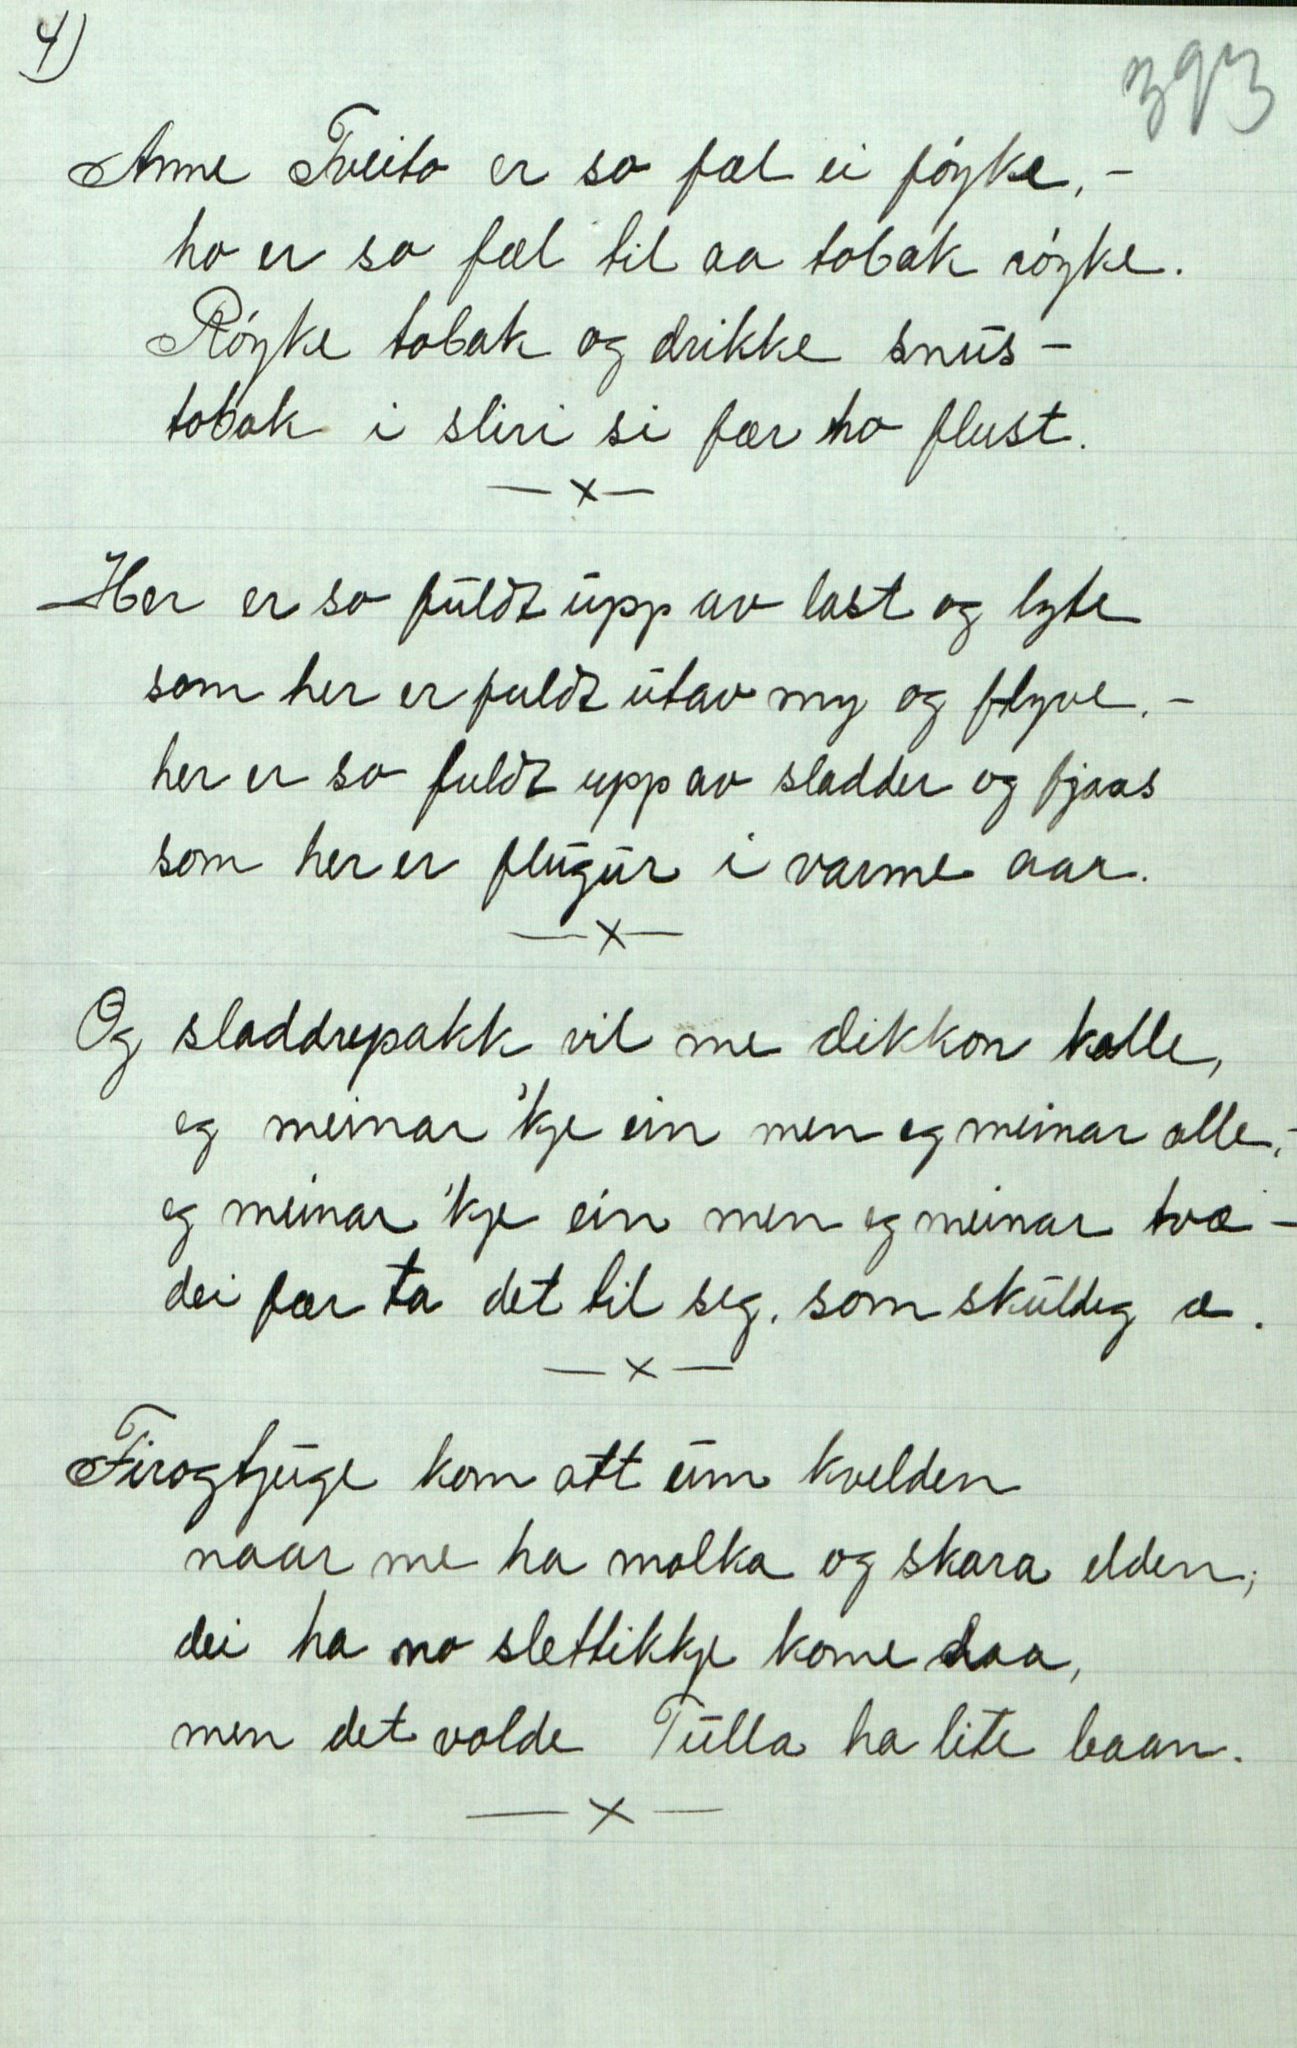 4)
393
Anne Tveito er so fæl ei føyke, -
ho er so fæl til aa tobak røyke.
Røyke tobak og drikke snus -
tobak i sliri si fær ho flust.
— x —
Her er so fuldt upp av last og lyte
som her er fuldt utav my og flyve. -
her er so fuldt upp av sladder og fjaas
som her er flugur i varme aar.
— x —
Og sladdrepakk vil me dikkon kalle,
eg meinar 'kje ein men eg meinar alle, -
eg meinar 'kje ein men eg meinar tvæ -
dei fær ta det til seg, som skuldig æ.
— x —
Firogtjuge kom att um kvelden
naar me ha molka og skara elden;
dei ha no slettikkje kome daa,
men det volde Tulla ha lite baan.
— x —